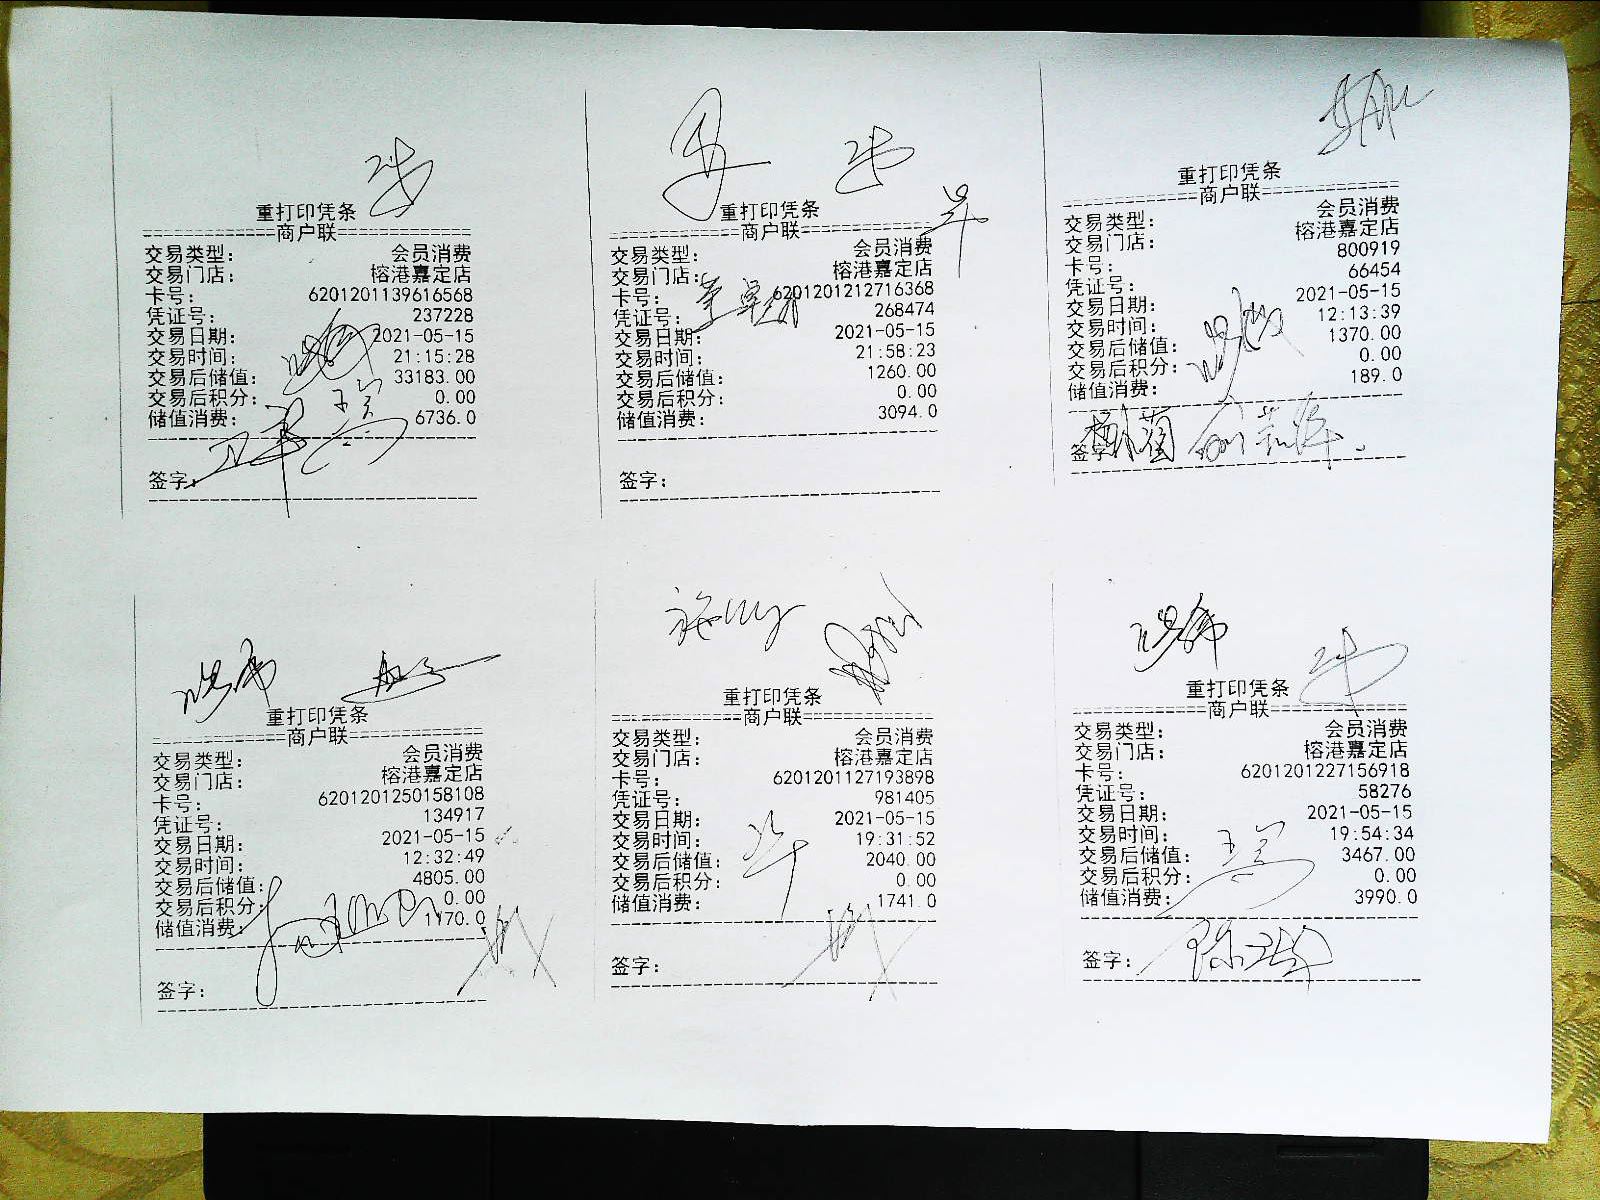 重打印凭条
商户联
交易类型： 会员消费
交易门店： 榕港嘉定店
卡号： 6201201139616568
凭证号： 237228
交易日期： 2021-05-15
交易时间： 21:15:28
交易后储值： 33183.00
交易后积分： 0.00
储值消费： 6736.0
签字：
重打印凭条
商户联
交易类型： 会员消费
交易门店： 榕港嘉定店
卡号： 6201201212716368
凭证号： 268474
交易日期： 2021-05-15
交易时间： 21:58:23
交易后储值： 1260.00
交易后积分： 0.00
储值消费： 3094.0
签字：
重打印凭条
商户联
交易类型： 会员消费
交易门店： 榕港嘉定店
卡号： 800919
凭证号： 66454
交易日期： 2021-05-15
交易时间： 12:13:39
交易后储值： 1370.00
交易后积分： 0.00
储值消费： 189.0
签字
重打印凭条
商户联
交易类型： 会员消费
交易门店： 榕港嘉定店
卡号： 6201201250158108
凭证号： 134917
交易日期： 2021-05-15
交易时间： 12:32:49
交易后储值： 4805.00
交易后积分： 0.00
储值消费： 1170.0
签字：
重打印凭条
商户联
交易类型： 会员消费
交易门店： 榕港嘉定店
卡号： 6201201127193898
凭证号： 981405
交易日期： 2021-05-15
交易时间： 19:31:52
交易后储值： 2040.00
交易后积分： 0.00
储值消费： 1741.0
签字：
重打印凭条
商户联
交易类型： 会员消费
交易门店： 榕港嘉定店
卡号： 6201201227156918
凭证号： 58276
交易日期： 2021-05-15
交易时间： 19:54:34
交易后储值： 3467.00
交易后积分： 0.00
储值消费： 3990.0
签字：